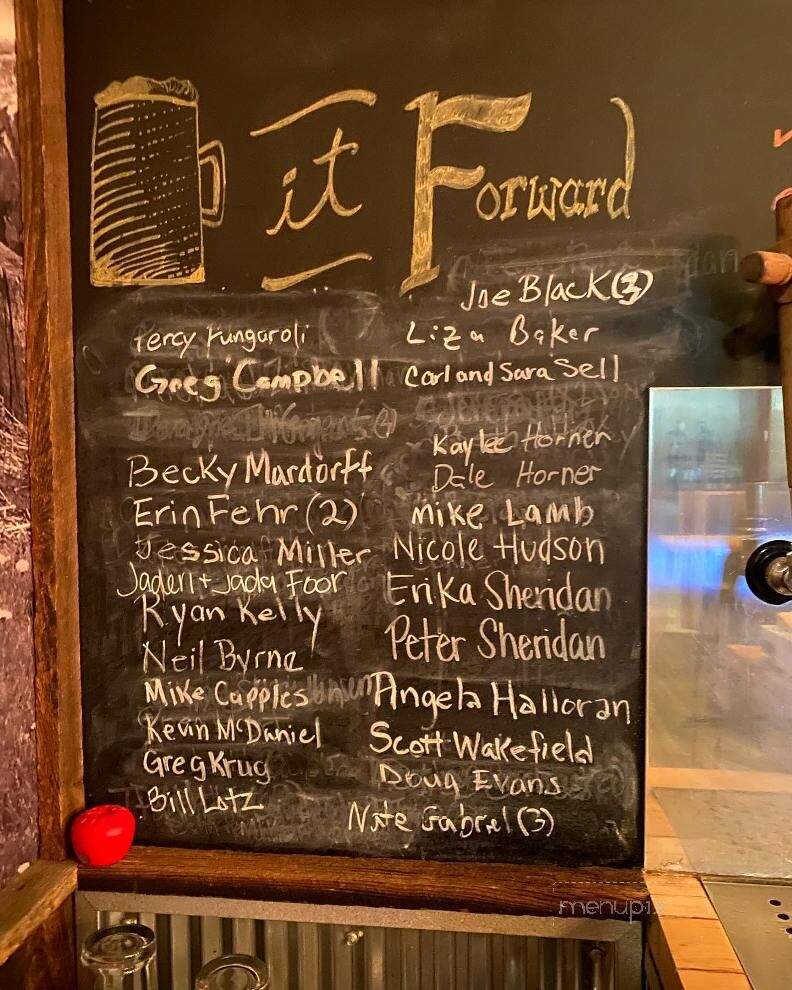 it Forward
Joe Black (3)
Tercy Fungaroli
Greg Campbell
Becky Mardorff
Erin Fehr (2)
Jessica Miller
Jaderl + Jada Foor
Ryan Kelly
Neil Byrne
Mike Cupples
Kevin McDaniel
Greg Krug
Bill Lotz
Liza Baker
Carl and Sara Sell
Kaylee Horner
Dale Horner
Mike Lamb
Nicole Hudson
Erika Sheridan
Peter Sheridan
Angela Halloran
Scott Wakefield
Doug Evans
Nate Gabriel (3)
menupix